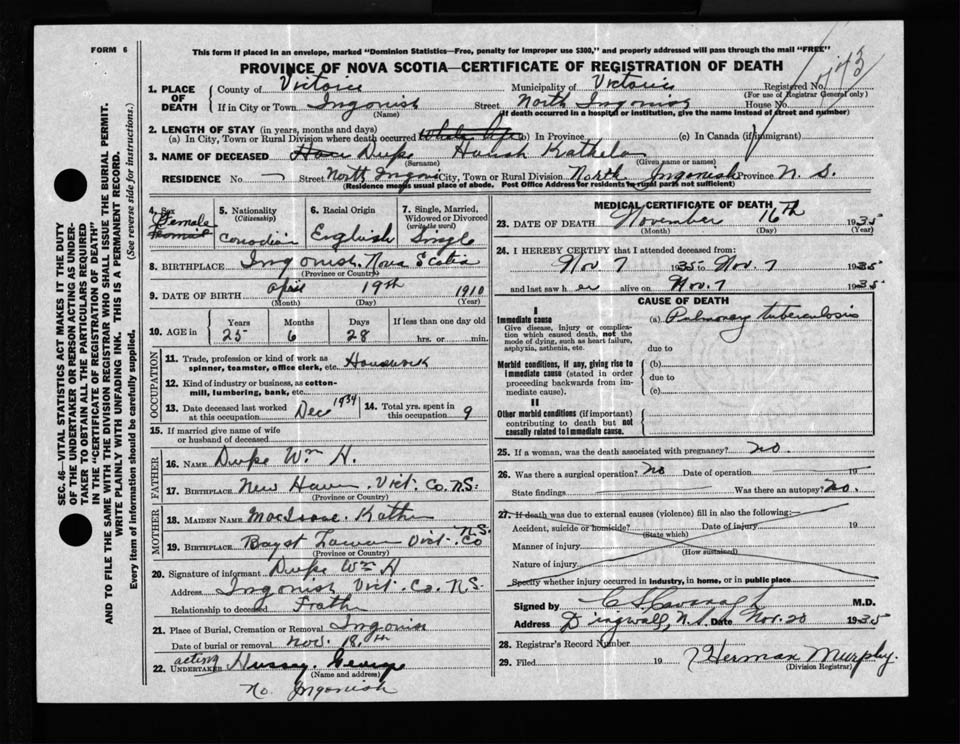 FORM 6
This form if placed in an envelope, marked "Dominion Statistics—Free, penalty for improper use $300," and properly addressed will pass through the mail "FREE"
PROVINCE OF NOVA SCOTIA—CERTIFICATE OF REGISTRATION OF DEATH
1. PLACE OF DEATH
County of Victoria Municipality of Victoria Registered No.
(For use of Registrar General only)
If in City or Town Ingonish Street North Ingonish House No.
(Name) (If death occurred in a hospital or institution, give the name instead of street and number)
2. LENGTH OF STAY (in years, months and days)
(a) In City, Town or Rural Division where death occurred Whole life (b) In Province (c) In Canada (if immigrant)
3. NAME OF DECEASED
(Surname) (Given name or names)
RESIDENCE No Street North City, Town or Rural Division North Ingonish Province N. S.
(Residence means usual place of abode. Post Office Address for residents in rural parts not sufficient)
4. Sex Female
5. Nationality (Citizenship) Canadian
6. Racial Origin English
7. Single, Married, Widowed or Divorced (write the word) Single
8. BIRTHPLACE Ingonish, Nova Scotia
(Province or Country)
9. DATE OF BIRTH April 19th 1910
(Month) (Day) (Year)
10. AGE in Years Months Days If less than one day old
25 6 28 hrs. or min.
OCCUPATION
11. Trade, profession or kind of work as spinner, teamster, office clerk, etc. Housework
12. Kind of industry or business, as cotton-mill, lumbering, bank, etc.
13. Date deceased last worked at this occupation Dec 1934
14. Total yrs. spent in this occupation 9
15. If married give name of wife or husband of deceased
FATHER
16. NAME Wm H.
17. BIRTHPLACE New Haven Vict. Co. N.S.
(Province or Country)
MOTHER
18. MAIDEN NAME
19. BIRTHPLACE Vict. Co N.S.
(Province or Country)
20. Signature of informant Wm H
Address Ingonish Vict. Co. N.S.
Relationship to deceased Father
21. Place of Burial, Cremation or Removal Ingonish
Date of burial or removal Nov. 18th
22. acting UNDERTAKER Hussey. George
(Name and address)
No. Ingonish
MEDICAL CERTIFICATE OF DEATH
23. DATE OF DEATH November 16th 1935
(Month) (Day) (Year)
24. I HEREBY CERTIFY that I attended deceased from:
Nov 7 35 to Nov. 7 1935
and last saw her alive on Nov. 7 1935
CAUSE OF DEATH
I
Immediate cause
Give disease, injury or complication which caused death, not the mode of dying, such as heart failure, asphyxia, asthenia, etc.
(a) Pulmonary tuberculosis
due to
Morbid conditions, if any, giving rise to immediate cause (stated in order proceeding backwards from immediate cause).
(b)
due to
(c)
II
Other morbid conditions (if important) contributing to death but not causally related to immediate cause.
25. If a woman, was the death associated with pregnancy? no.
26. Was there a surgical operation? no Date of operation 19
State findings Was there an autopsy? no.
27. If death was due to external causes (violence) fill in also the following:
Accident, suicide or homicide? Date of injury 19
(State which)
Manner of injury
(How sustained)
Nature of injury
Specify whether injury occurred in industry, in home, or in public place
Signed by C S Cavanagh M.D.
Address Dingwall, N.S. Date Nov. 20 1935
28. Registrar's Record Number
29. Filed 19 Herman Murphy.
(Division Registrar)
SEC. 46— VITAL STATISTICS ACT MAKES IT THE DUTY
OF THE UNDERTAKER OR PERSON ACTING AS UNDER-
TAKER TO OBTAIN ALL THE PARTICULARS REQUIRED
IN THE "CERTIFICATE OF REGISTRATION OF DEATH"
AND TO FILE THE SAME WITH THE DIVISION REGISTRAR WHO SHALL ISSUE THE BURIAL PERMIT.
WRITE PLAINLY WITH UNFADING INK. THIS IS A PERMANENT RECORD.
Every item of information should be carefully supplied. (See reverse side for instructions.)